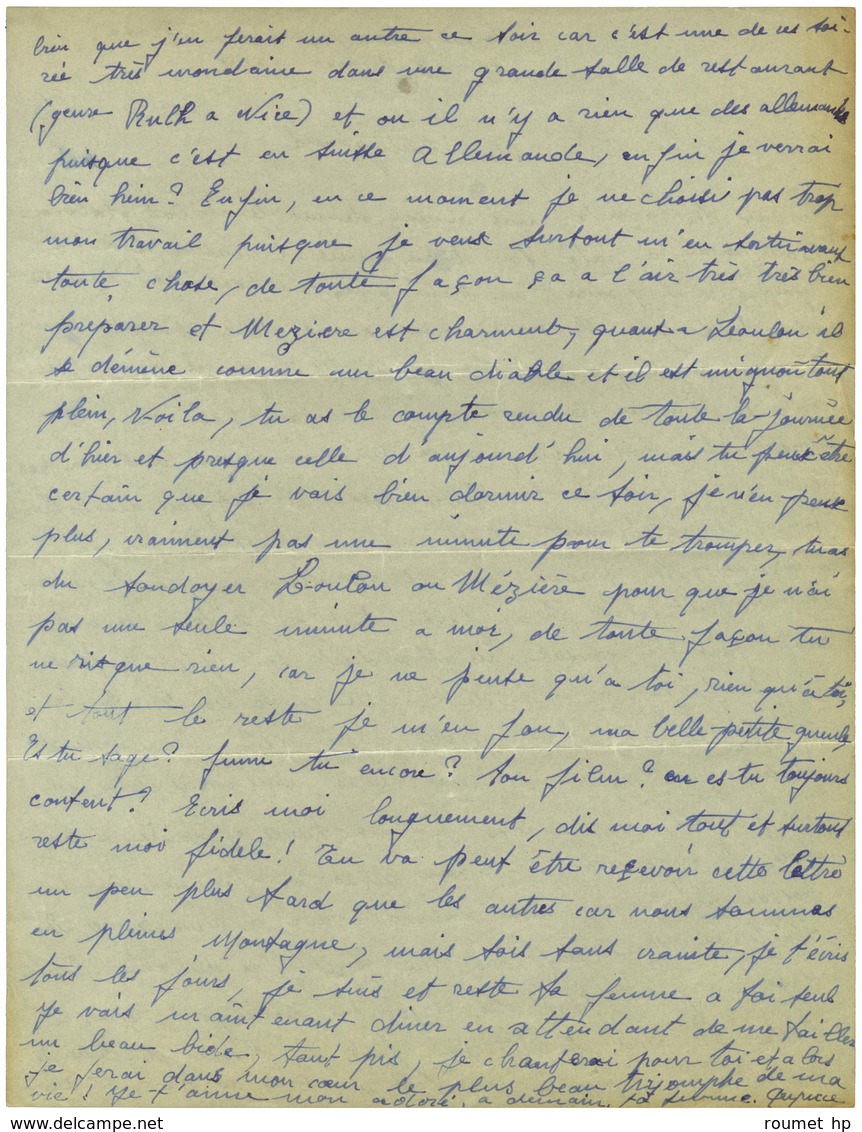 bien que j'en ferait un autre ce soir car c'est une de ces soi-
rée très mondaine dans une grande salle de restaurant
(genre Ruhl a Nice) et ou il n'y a rien que des allemands
puisque c'est en suisse Allemande, enfin je verrai
bien hein? Enfin, en ce moment je ne choisi pas trop
mon travail puisque je veux surtout m'en sortir avant
toute chose, de toute façon ça a l'air très très bien
préparer et Mezière est charment, quant a Loulou il
se démène comme un beau diable et il est mignon tout
plein, Voila, tu as le compte rendu de toute la journée
d'hier et presque celle d'aujourd'hui, mais tu peux être
certain que je vais bien dormir ce soir, je n'en peux
plus, vraiment pas une minute pour te tromper, tu as
du soudoyer Loulou ou Mézière pour que je n'ai
pas une seule minute a moi, de toute façon tu
ne risque rien, car je ne pense qu'a toi, rien qu'à toi,
et tout le reste je m'en fou, ma belle petite gueule,
Es tu sage? fume tu encore? ton film? en es tu toujours
content? Ecris moi longuement, dis moi tout et surtout
reste moi fidèle! Tu va peut être reçevoir cette lettre
un peu plus tard que les autres car nous sommes
en pleines Montagne, mais sois sans crainte, je t'écris
tous les jours, je suis et reste ta femme a toi seul
je vais maintenant diner en attendant de me tailler
un beau bide, tant pis, je chanterai pour toi et alors
je ferai dans mon cœur le plus beau triomphe de ma
vie! Je t'aime mon adoré, a demain. ta